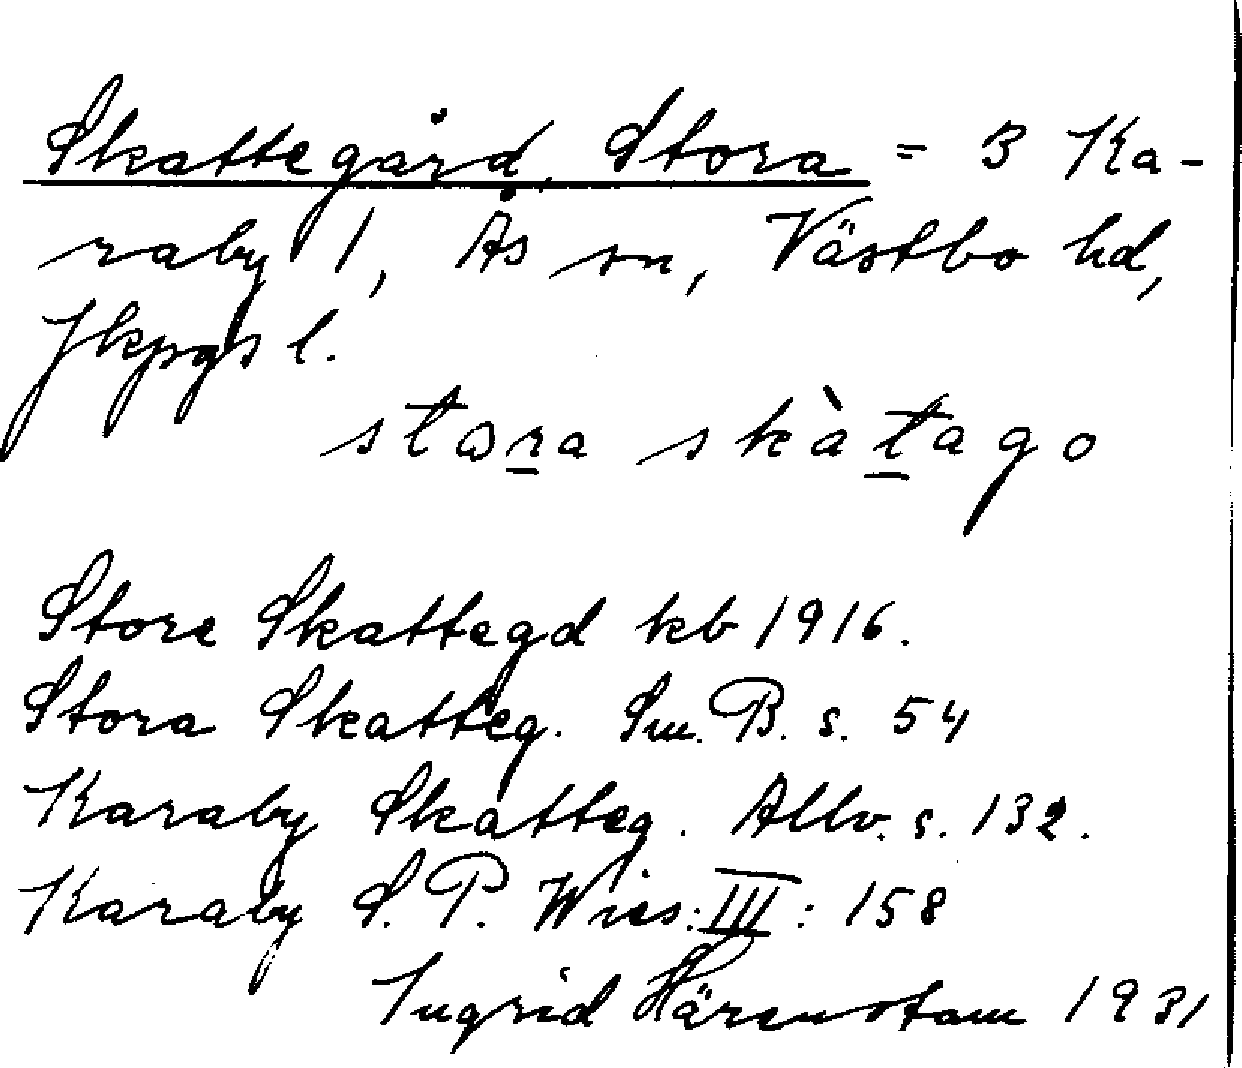 Skattegård, Stora = 3 Ka-
raby 1, Ås sn, Västbo hd,
Jkpgs l.
stɷra skàtago
Store Skattegd kb 1916.
Stora Skatteg. Sm. B. s. 54
Karaby Skatteg. Allv. s. 132.
Karaby S. P. Wies: III: 158
Ingrid Härenstam 1931